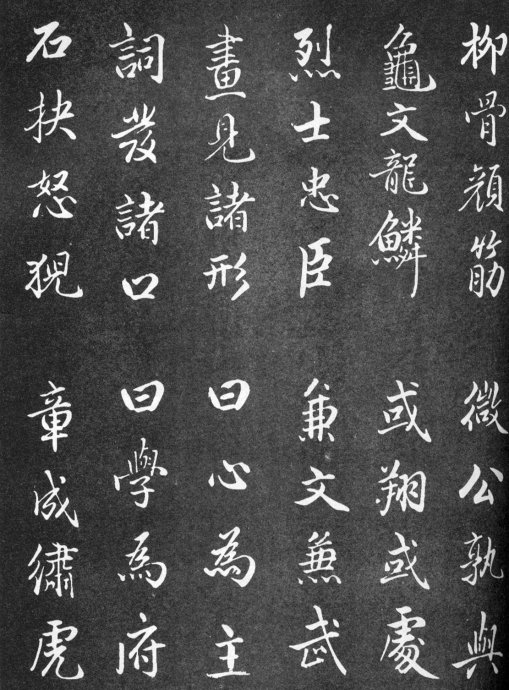 柳骨顔筋 微公孰與
龜文龍鱗 或翔或處
烈士忠臣 兼文兼武
畫見諸形 曰心為主
詞發諸口 曰學為府
石抉怒猊 章成繡虎